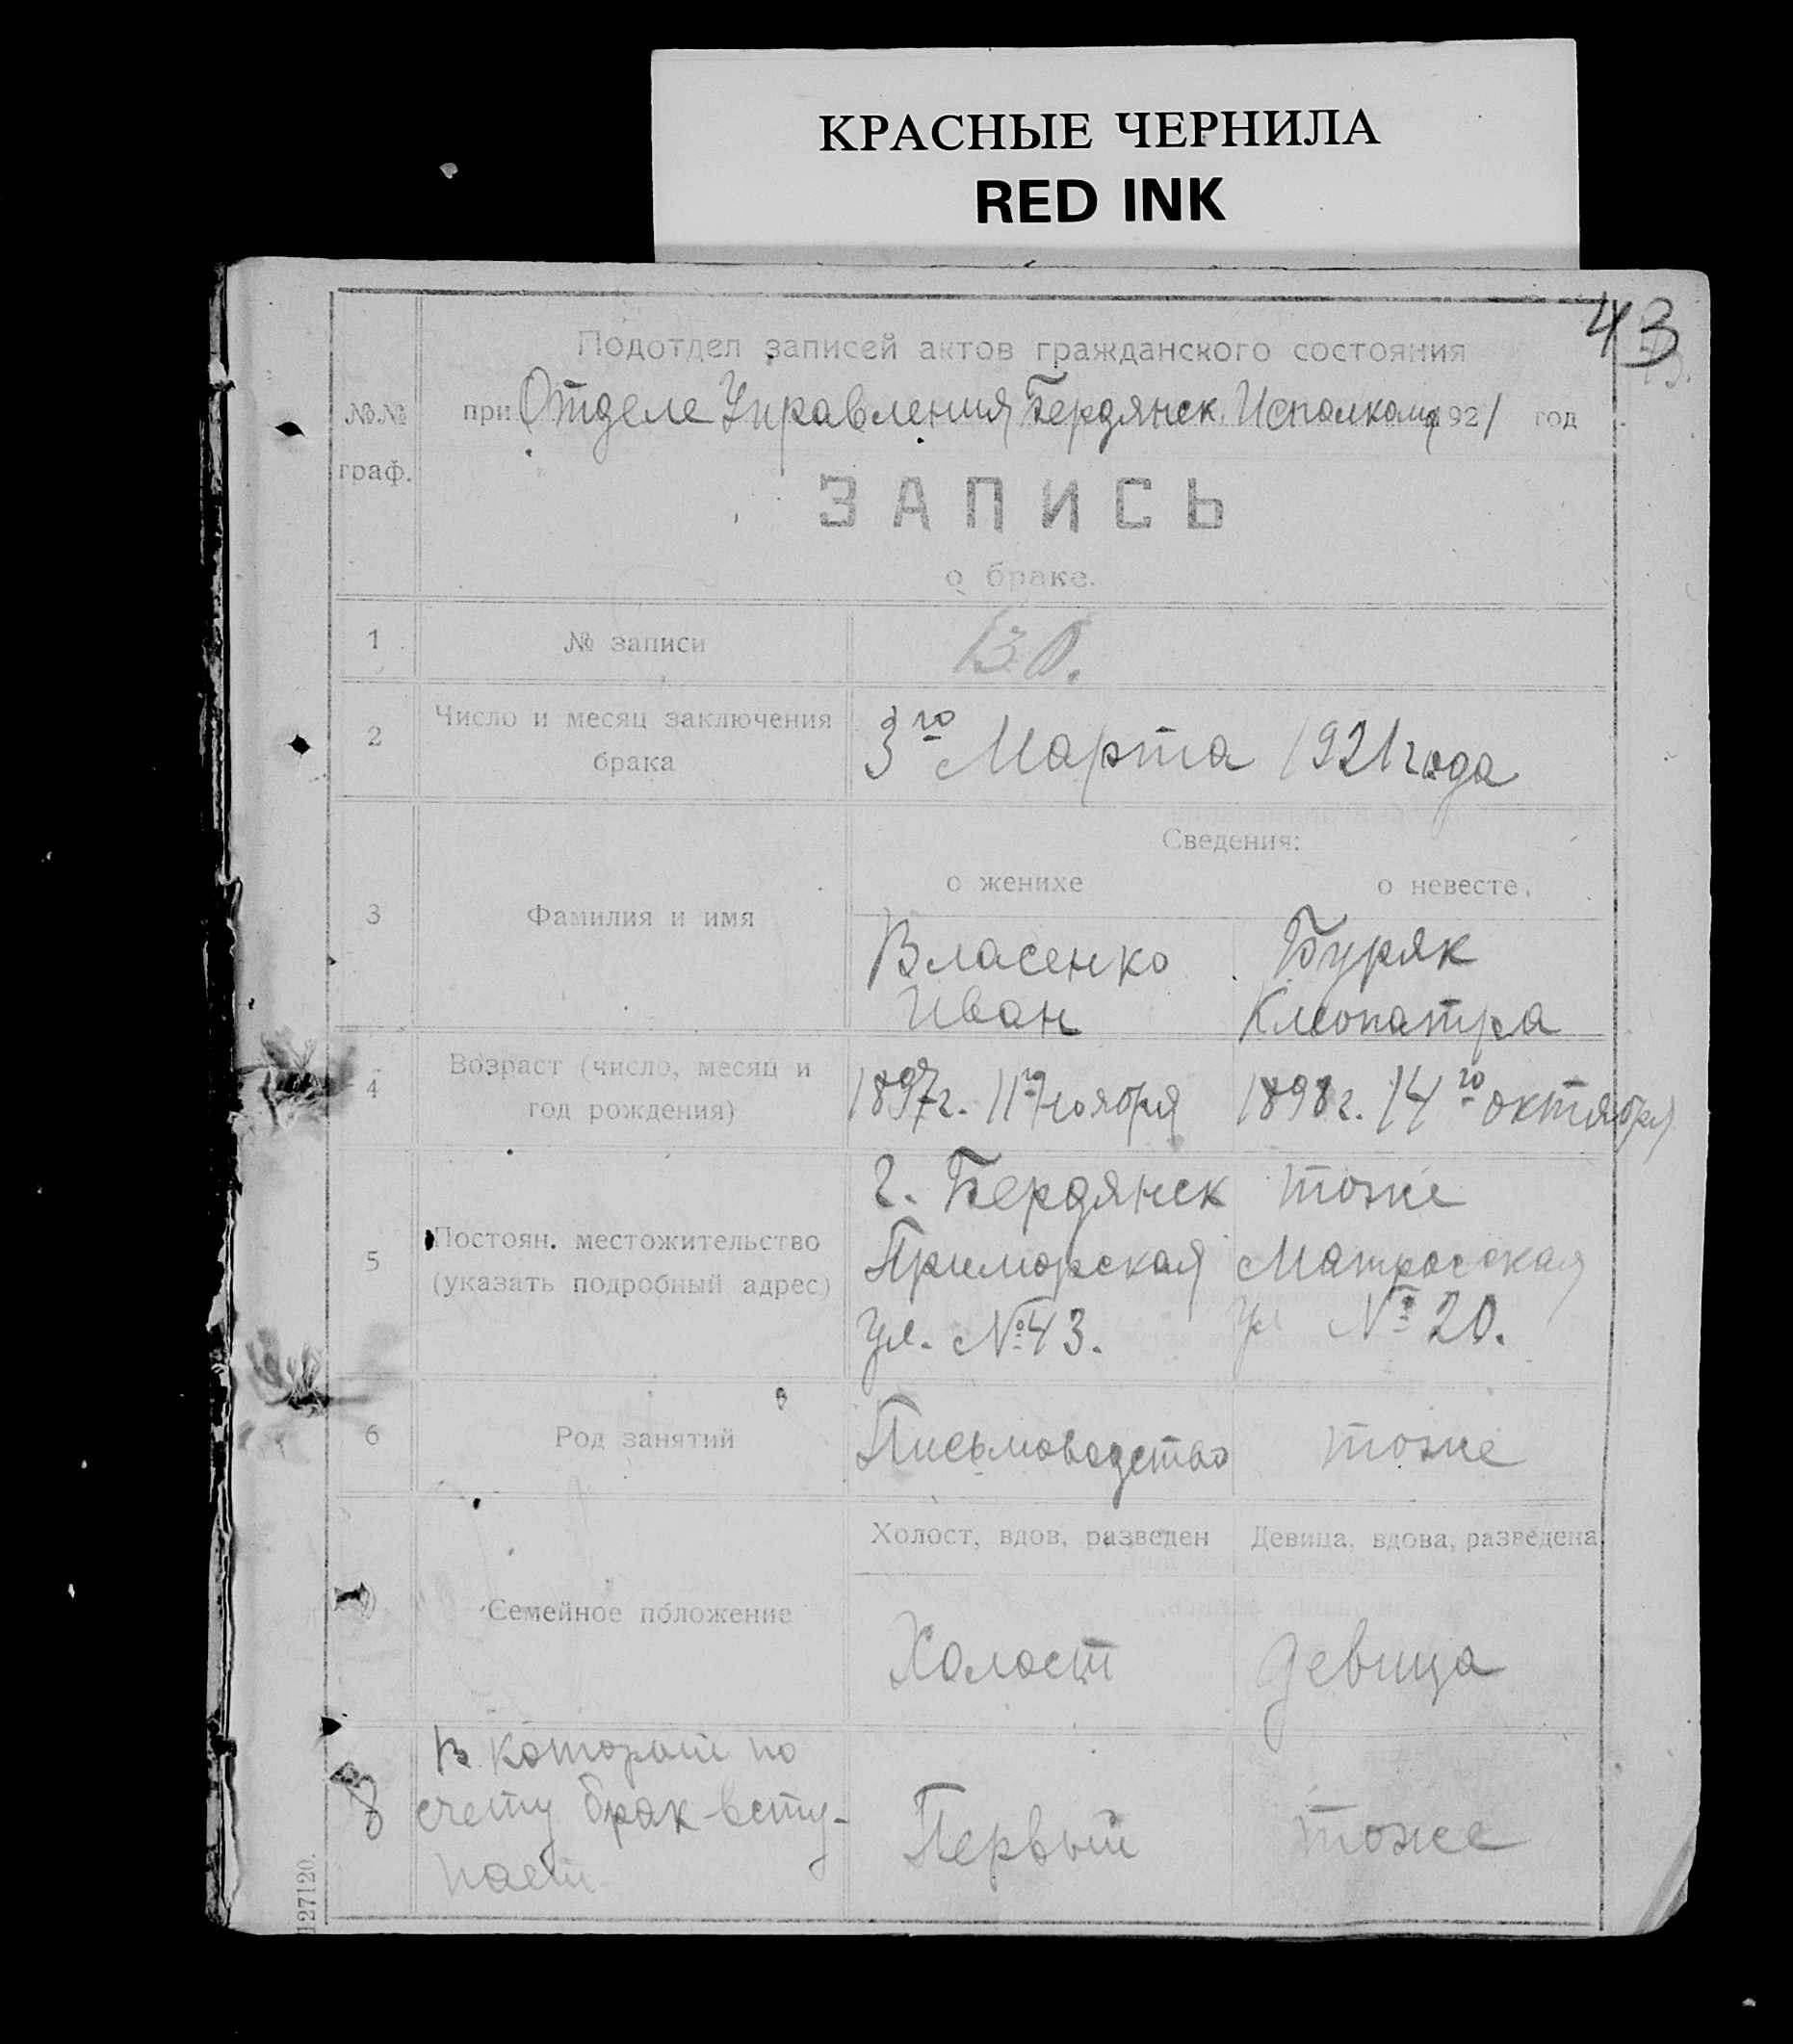 КРАСНЫЕ ЧЕРНИЛА
RED INK
43
Подотдел записей актов гражданского состояния
№№ граф.
при Отделе Управления Бердянск. Исполкома 1921 год
ЗАПИСЬ
о браке.
1 № записи 130.
2 Число и месяц заключения брака
3го Марта 1921 года
Сведения:
о женихе о невесте.
3 Фамилия и имя
Власенко Буряк
Иван Клеопатра
4 Возраст (число, месяц и год рождения)
1897г. 11го ноября 1898г. 14го октября
5 Постоян. местожительство (указать подробный адрес)
г. Бердянск тоже
Приморская Матросская
ул. №43. ул №20.
6 Род занятий Письмоводство тоже
Холост, вдов, разведен Девица, вдова, разведена
7 Семейное положение
Холост девица
8 В который по
счету брак всту-
пает
Первый тоже
127120.